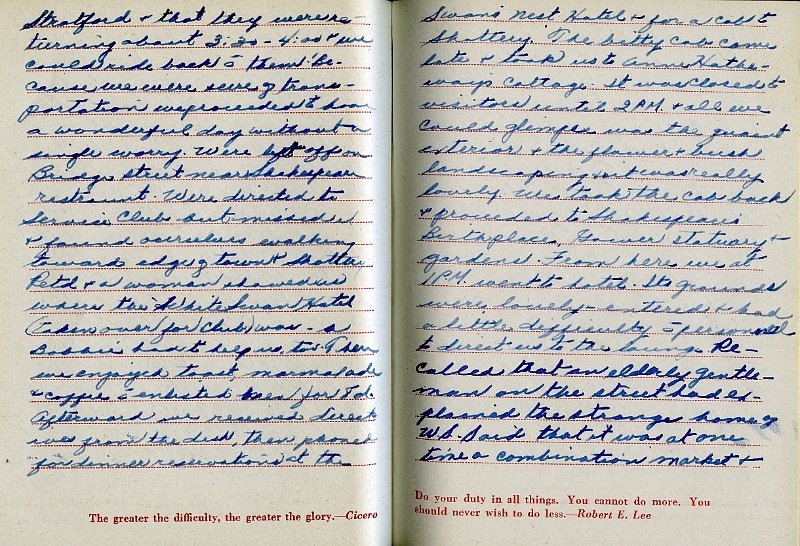 Stratford & that they were re-
turning about 3:30 - 4:00 & we
could ride back c̄ them. Be-
cause we were sure of trans-
portation we proceeded to have
a wonderful day without a
single worry. Were left off on
Bridge Street near Shakespeare
restraunt. Were directed to
Service Club but missed it
& found ourselves walking
toward edge of town & Shottery
Rd & a woman showed us
where the White Swan Hotel
(taken over for Club) was - a
Bobbie had to help us, too. There
we enjoyed toast, marmalade
& coffee c̄ enlisted men for
Afterward we received direct-
ives from the desk, then phoned
for dinner reservations at the
The greater the difficulty, the greater the glory.—Cicero
Swan's Nest Hotel & for a cab to
Shottery. The bitty cab came
late & took us to Anne Hatha-
way's Cottage. It was closed to
visitors until 2 PM & all we
could glimpse was the quaint
exterior & the flower & bush
landscaping & it was really
lovely. We took the cab back
& proceeded to Shakespeare's
Birthplace, Gower statuary &
gardens. From here we at
1 PM went to hotel. Its grounds
were lovely - entered & had
a little difficulty c̄ personnel
to direct us to the dining. Re-
called that an elderly gentle-
man on the street had ex-
plained the strange home of
W.S. Said that it was at one
time a combination market &
Do your duty in all things. You cannot do more. You
should never wish to do less.—Robert E. Lee